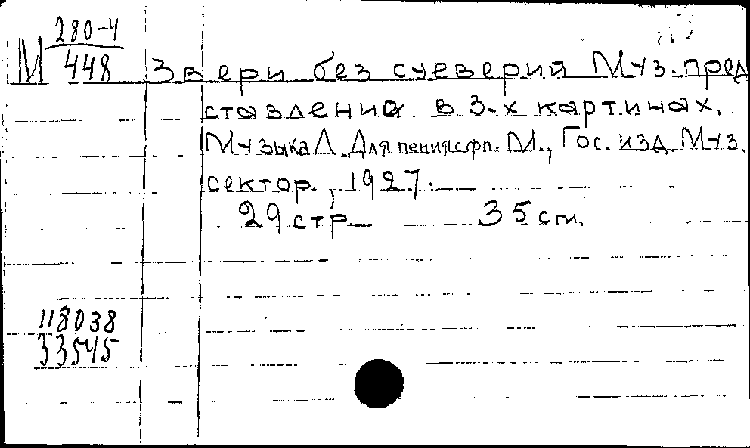 М 280-4
448
Звери без суеверий Муз. пред
ставление в 3-х картинах.
Музыка Л. Для пения с фп. М., Гос. изд. Муз.
сектор, 1927.
29 стр. 35 см.
118038
33545